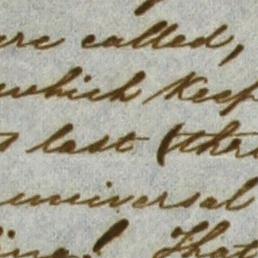 ere called,
which keep
last (thr
universal
! That